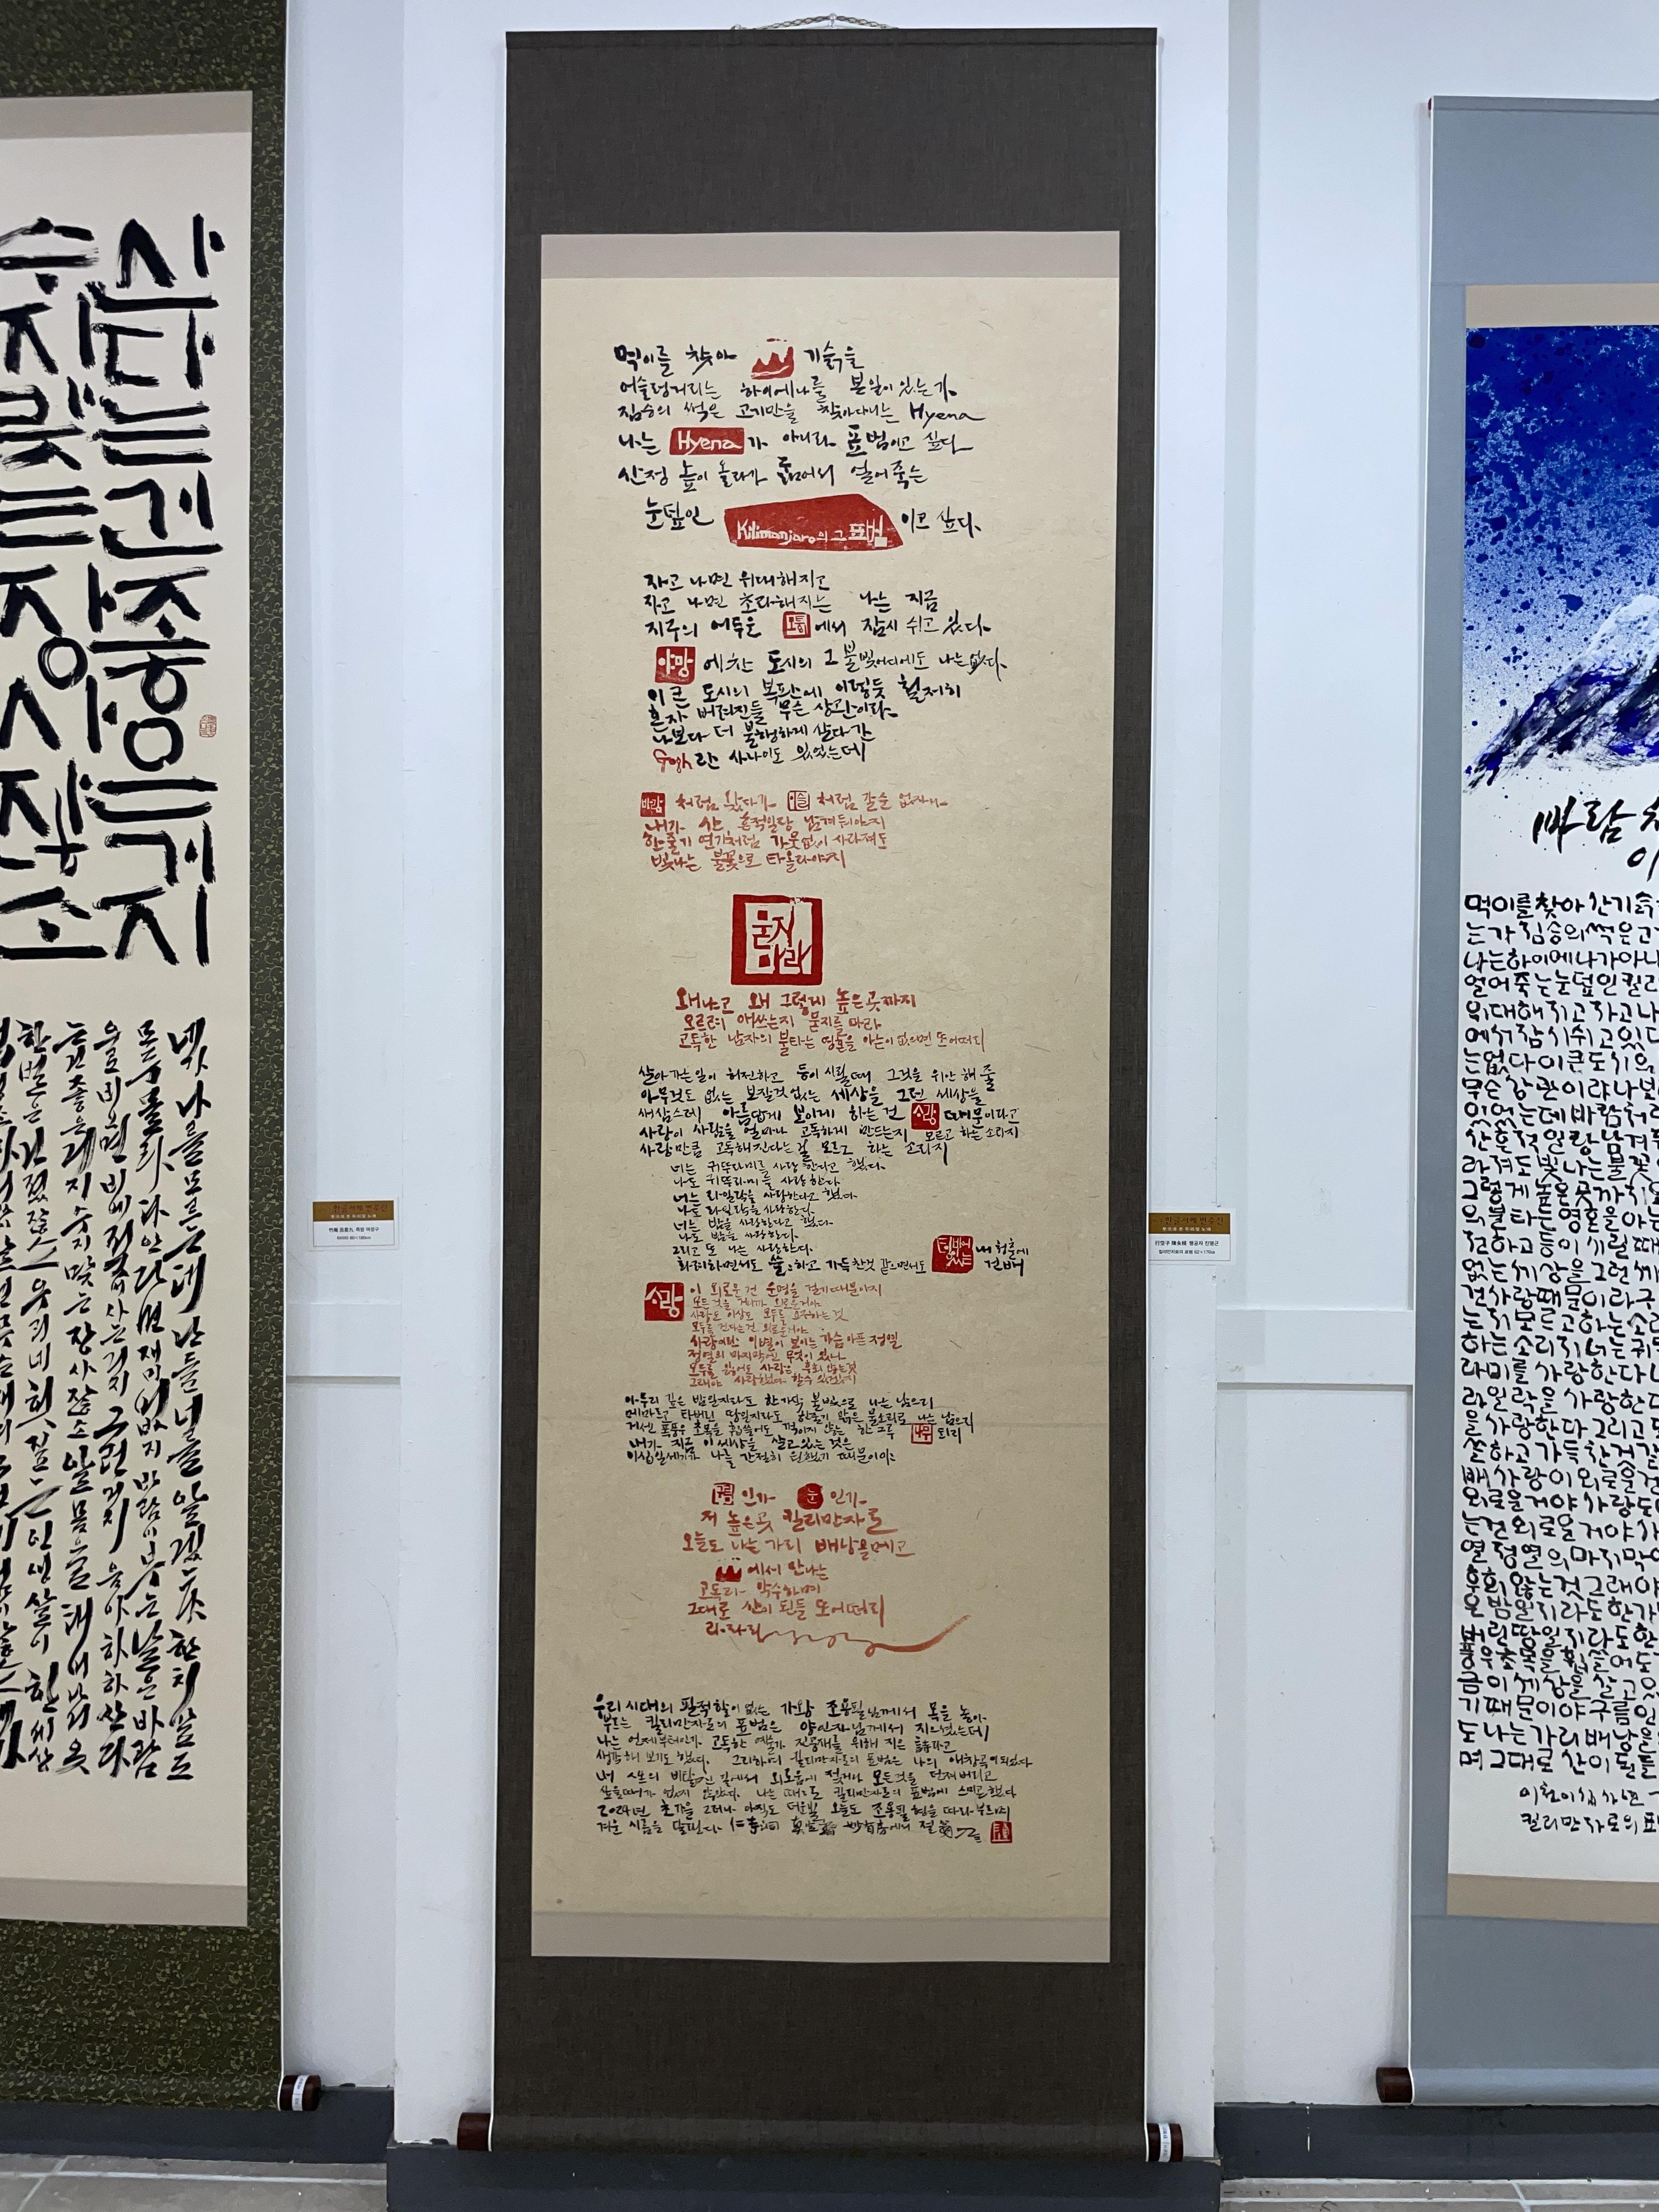 산다는건좋은게지
수지맞는장사잖소
네가 나를 모르는데 난들 너를 알겠느냐 한치 앞도
모두 몰라 다 안다면 재미없지 바람이 부는 날은 바람
으로 비오면 비에 젖어 사는거지 그런거지 음아하하 산다
는건 좋은게지 수지맞는 장사잖소 알몸으로 태어나서 옷
한벌은 건졌잖소 우리네 인생살이 한세상
한글서예 변주전
먹이를 찾아 山 기슭을
어슬렁거리는 하이에나를 본일이 있는가
짐승의 썩은 고기만을 찾아다니는 Hyena
나는 Hyena가 아니라 표범이고 싶다
산정 높이 올라가 굶어서 얼어죽는
눈덮인 Kilimanjaro의 그 표범 이고 싶다.
자고 나면 위대해지고
자고 나면 초라해지는 나는 지금
지구의 어두운 모퉁이에서 잠시 쉬고 있다.
야망에 찬 도시의 그 불빛어디에도 나는 없다.
이 큰 도시의 복판에 이렇듯 철저히
혼자 버려진들 무슨 상관이랴
나보다 더 불행하게 살다 간
Gogh란 사나이도 있었는데
바람처럼 왔다가 이슬처럼 갈순 없잖아
내가 산 흔적일랑 남겨둬야지
한줄기 연기처럼 가뭇없이 사라져도
빛나는 불꽃으로 타올라야지
묻지마라
왜냐고 왜 그렇게 높은곳까지
오르려 애쓰는지 묻지를 마라
고독한 남자의 불타는 영혼을 아는이 없으면 또 어떠리
살아가는일이 허전하고 등이 시릴때 그것을 위안해 줄
아무것도 없는 보잘것 없는 세상을 그런 세상을
새삼스레 아름답게 보이게 하는건 사랑 때문이라고
사랑이 사람을 얼마나 고독하게 만드는지 모르고 하는소리지
사랑만큼 고독해진다는걸 모르고 하는 소리지
너는 귀뚜라미를 사랑한다고 했다.
나도 귀뚜라미를 사랑한다.
너는 라일락을 사랑한다고 했다
나도 라일락을 사랑한다.
너는 밤을 사랑한다고 했다.
나도 밤을 사랑한다.
그리고 또 나는 사랑한다.
화려하면서도 쓸쓸하고 가득찬것 같으면서도 텅비어있는 내 청춘에 건배
사랑이 외로운 건 운명을 걸기때문이지
모든것을 거니까 외로운거야
사랑도 이상도 모두를 요구하는 것
모두를 건다는건 외로운거야
사랑이란 이별이 보이는 가슴아픈 정열
정열의 마지막엔 무엇이 있나
모두를 잃어도 사랑은 후회 않는것
그래야 사랑했다 할수 있겠지
아무리 깊은 밤일지라도 한가닥 불빛으로 나는 남으리
메마르고 타버린 땅일지라도 한줄기 맑은 물소리로 나는 남으리
거센 폭풍우 초목을 휩쓸어도 꺾이지 않는 한 그루 나무되리
내가 지금 이세상을 살고 있는 것은
이십일세기가 나를 간절히 원했기 때문이야
구름인가 눈인가
저 높은곳 킬리만자로
오늘도 나는 가리 배낭을 메고
山에서 만나는
고독과 악수하며
그대로 산이 된들 또 어떠리
라.라라
우리시대의 필적할이 없는 가왕 조용필님께서 목을 놓아
부르는 킬리만자로의 표범은 양인자님께서 지으셨는데
나는 언제부터인가 고독한 예술가 진공재를 위해 지은 글이라고
생각해 보기도 했다. 그리하여 킬리만자로의 표범은 나의 애창곡이 되었다
내 人生의 비탈진 길에서 외로움에 젖거나 모든것을 던져버리고
싶을때가 없지 않았다. 나는 때때로 킬리만자로의 표범에 스며들었다
2024년 초가을 그러나 아직도 더운날 오늘도 조용필 형을 따라부르며
겨운 시름을 달랜다
한글서예 변주전
킬리만자로의 표범 62×176㎝
바람처
이
먹이를찾아산기슭
는가짐승의썩은고
나는하이에나가아니
얼어죽는눈덮인킬리
위대해지고자고나
에서잠시쉬고있다
는없다이큰도시의
무슨상관이랴나보
있었는데바람처럼
산흔적일랑남겨둬
라져도빛나는불꽃
그렇게높은곳까지오
의불타는영혼을아는
전하고등이시릴때
없는세상을그런세
건사랑때문이라구
는지모르고하는소리
하는소리지너는귀뚜
라미를사랑한다너
라일락을사랑한다
을사랑한다그리고또
쓸하고가득찬것같
배사랑이외로운건
외로운거야사랑도
는건외로운거야사
열정열의마지막엔
후회않는것그래야
은밤일지라도한가
버린땅일지라도한
풍우초목을휩쓸어도
금이세상을살고있
기때문이야구름인
도나는가리배낭을
며그대로산이된들
이천이십사년
킬리만자로의표